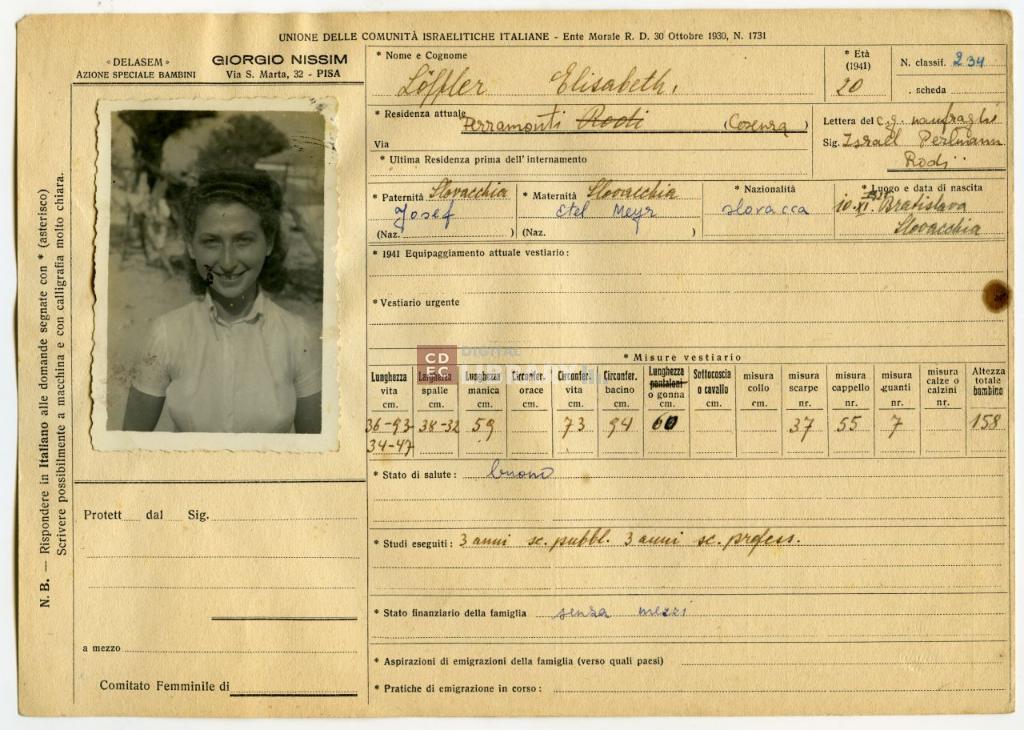 UNIONE DELLE COMUNITÀ ISRAELITICHE ITALIANE - Ente Morale R. D. 30 Ottobre 1930, N. 1731
« DELASEM »
AZIONE SPECIALE BAMBINI
GIORGIO NISSIM
Via S. Marta, 32 - PISA
N. B. — Rispondere in Italiano alle domande segnate con * (asterisco)
Scrivere possibilmente a macchina e con calligrafia molto chiara.
* Nome e Cognome
Löffler Elisabeth,
* Età
(1941)
20
N. classif. 234
. scheda
* Residenza attuale Ferramonti Rodi (Cosenza)
Via
* Ultima Residenza prima dell'internamento
Lettera del naufraghi
Sig. Israel Perlmann
Rodi
* Paternità Slovacchia
Josef
(Naz. )
* Maternità Slovacchia
Etel Meyr
(Naz. )
* Nazionalità
slovacca
* Luogo e data di nascita
10.XI. Bratislava
Slovacchia
* 1941 Equipaggiamento attuale vestiario :
* Vestiario urgente
* Misure vestiario
Lunghezza vita cm.
Larghezza spalle cm.
Lunghezza manica cm.
Circonfer. orace cm.
Circonfer. vita cm.
Circonfer. bacino cm.
Lunghezza pantaloni o gonna cm.
Sottocoscia o cavallo cm.
misura collo cm.
misura scarpe nr.
misura cappello nr.
misura guanti nr.
misura calze o calzini nr.
Altezza totale bambino
36-93 38-32 59 73 94 60 37 55 7 158
34-47
CDEC
DIGITAL
* Stato di salute : buono
* Studi eseguiti : 3 anni sc. pubbl. 3 anni sc. profess.
* Stato finanziario della famiglia senza mezzi
* Aspirazioni di emigrazioni della famiglia (verso quali paesi)
* Pratiche di emigrazione in corso :
Protett dal Sig.
a mezzo
Comitato Femminile di